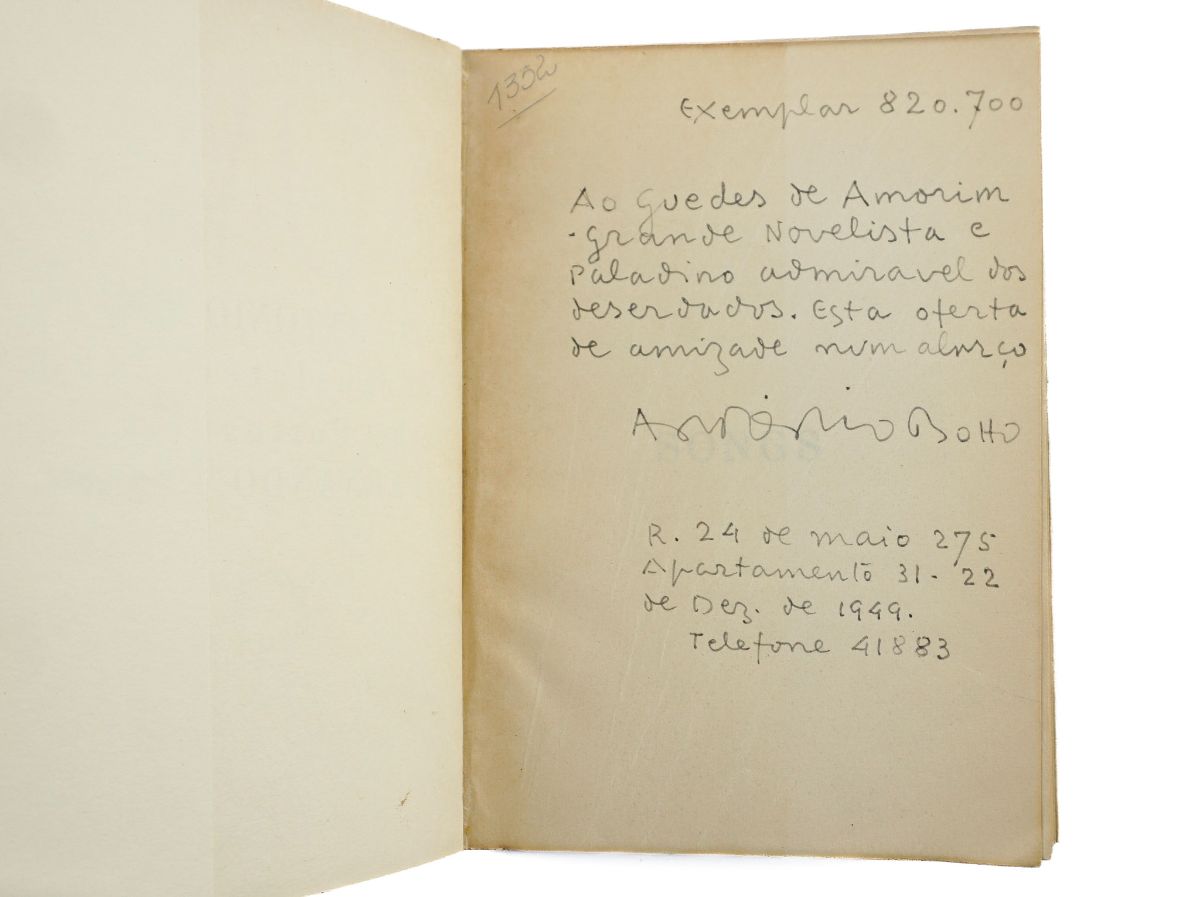 1352
Exemplar 820.700
Ao Guedes de Amorim
- Grande Novelista e
Paladino admiravel dos
deserdados. Esta oferta
de amizade num abraço
António Botto
SONGS
R. 24 de maio 275
Apartamento 31 - 22
de Dez. de 1949.
Telefone 41883